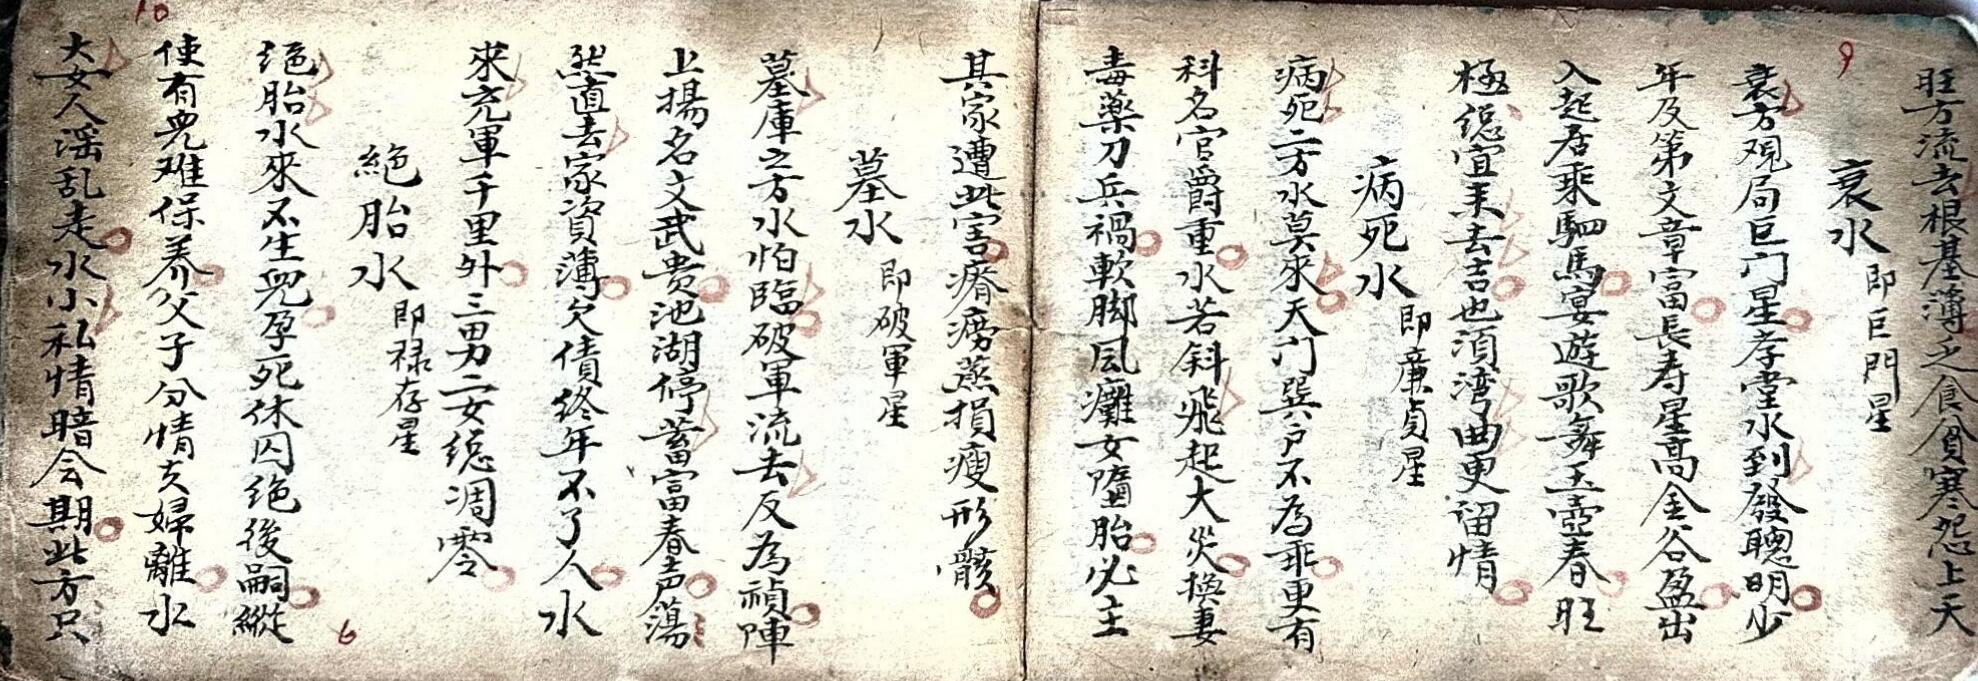 旺方流去根基薄乏食貧寒怨上天
衰水 即巨門星
9
衰方观局巨门星孝堂水到發聰明少
年及第文章富長寿星高金谷盈出
入起居乘駟馬宴遊歌舞玉壺春旺
極緦宜耒去吉也須湾曲更留情
病死水 即廉貞星
病死二方水莫來天门巽户不為乖更有
科名官爵重水若斜飛起大災換妻
毒藥刀兵禍軟脚風癱女墮胎必主
其家遭此害瘠痨蒸損瘦形骸
墓水 即破軍星
墓庫之方水怕臨破軍流去反為禎陣
上揚名文武贵池湖停蓄富春声蕩
然直去家資薄欠債終年不了人水
來充軍千里外三男二女緦凋零
絶胎水 即禄存星
6
绝胎水來不生兒孕死休囚绝後嗣縱
使有兒难保养父子分情夫婦離水
10
大女人滛乱走水小私情暗会期此方只